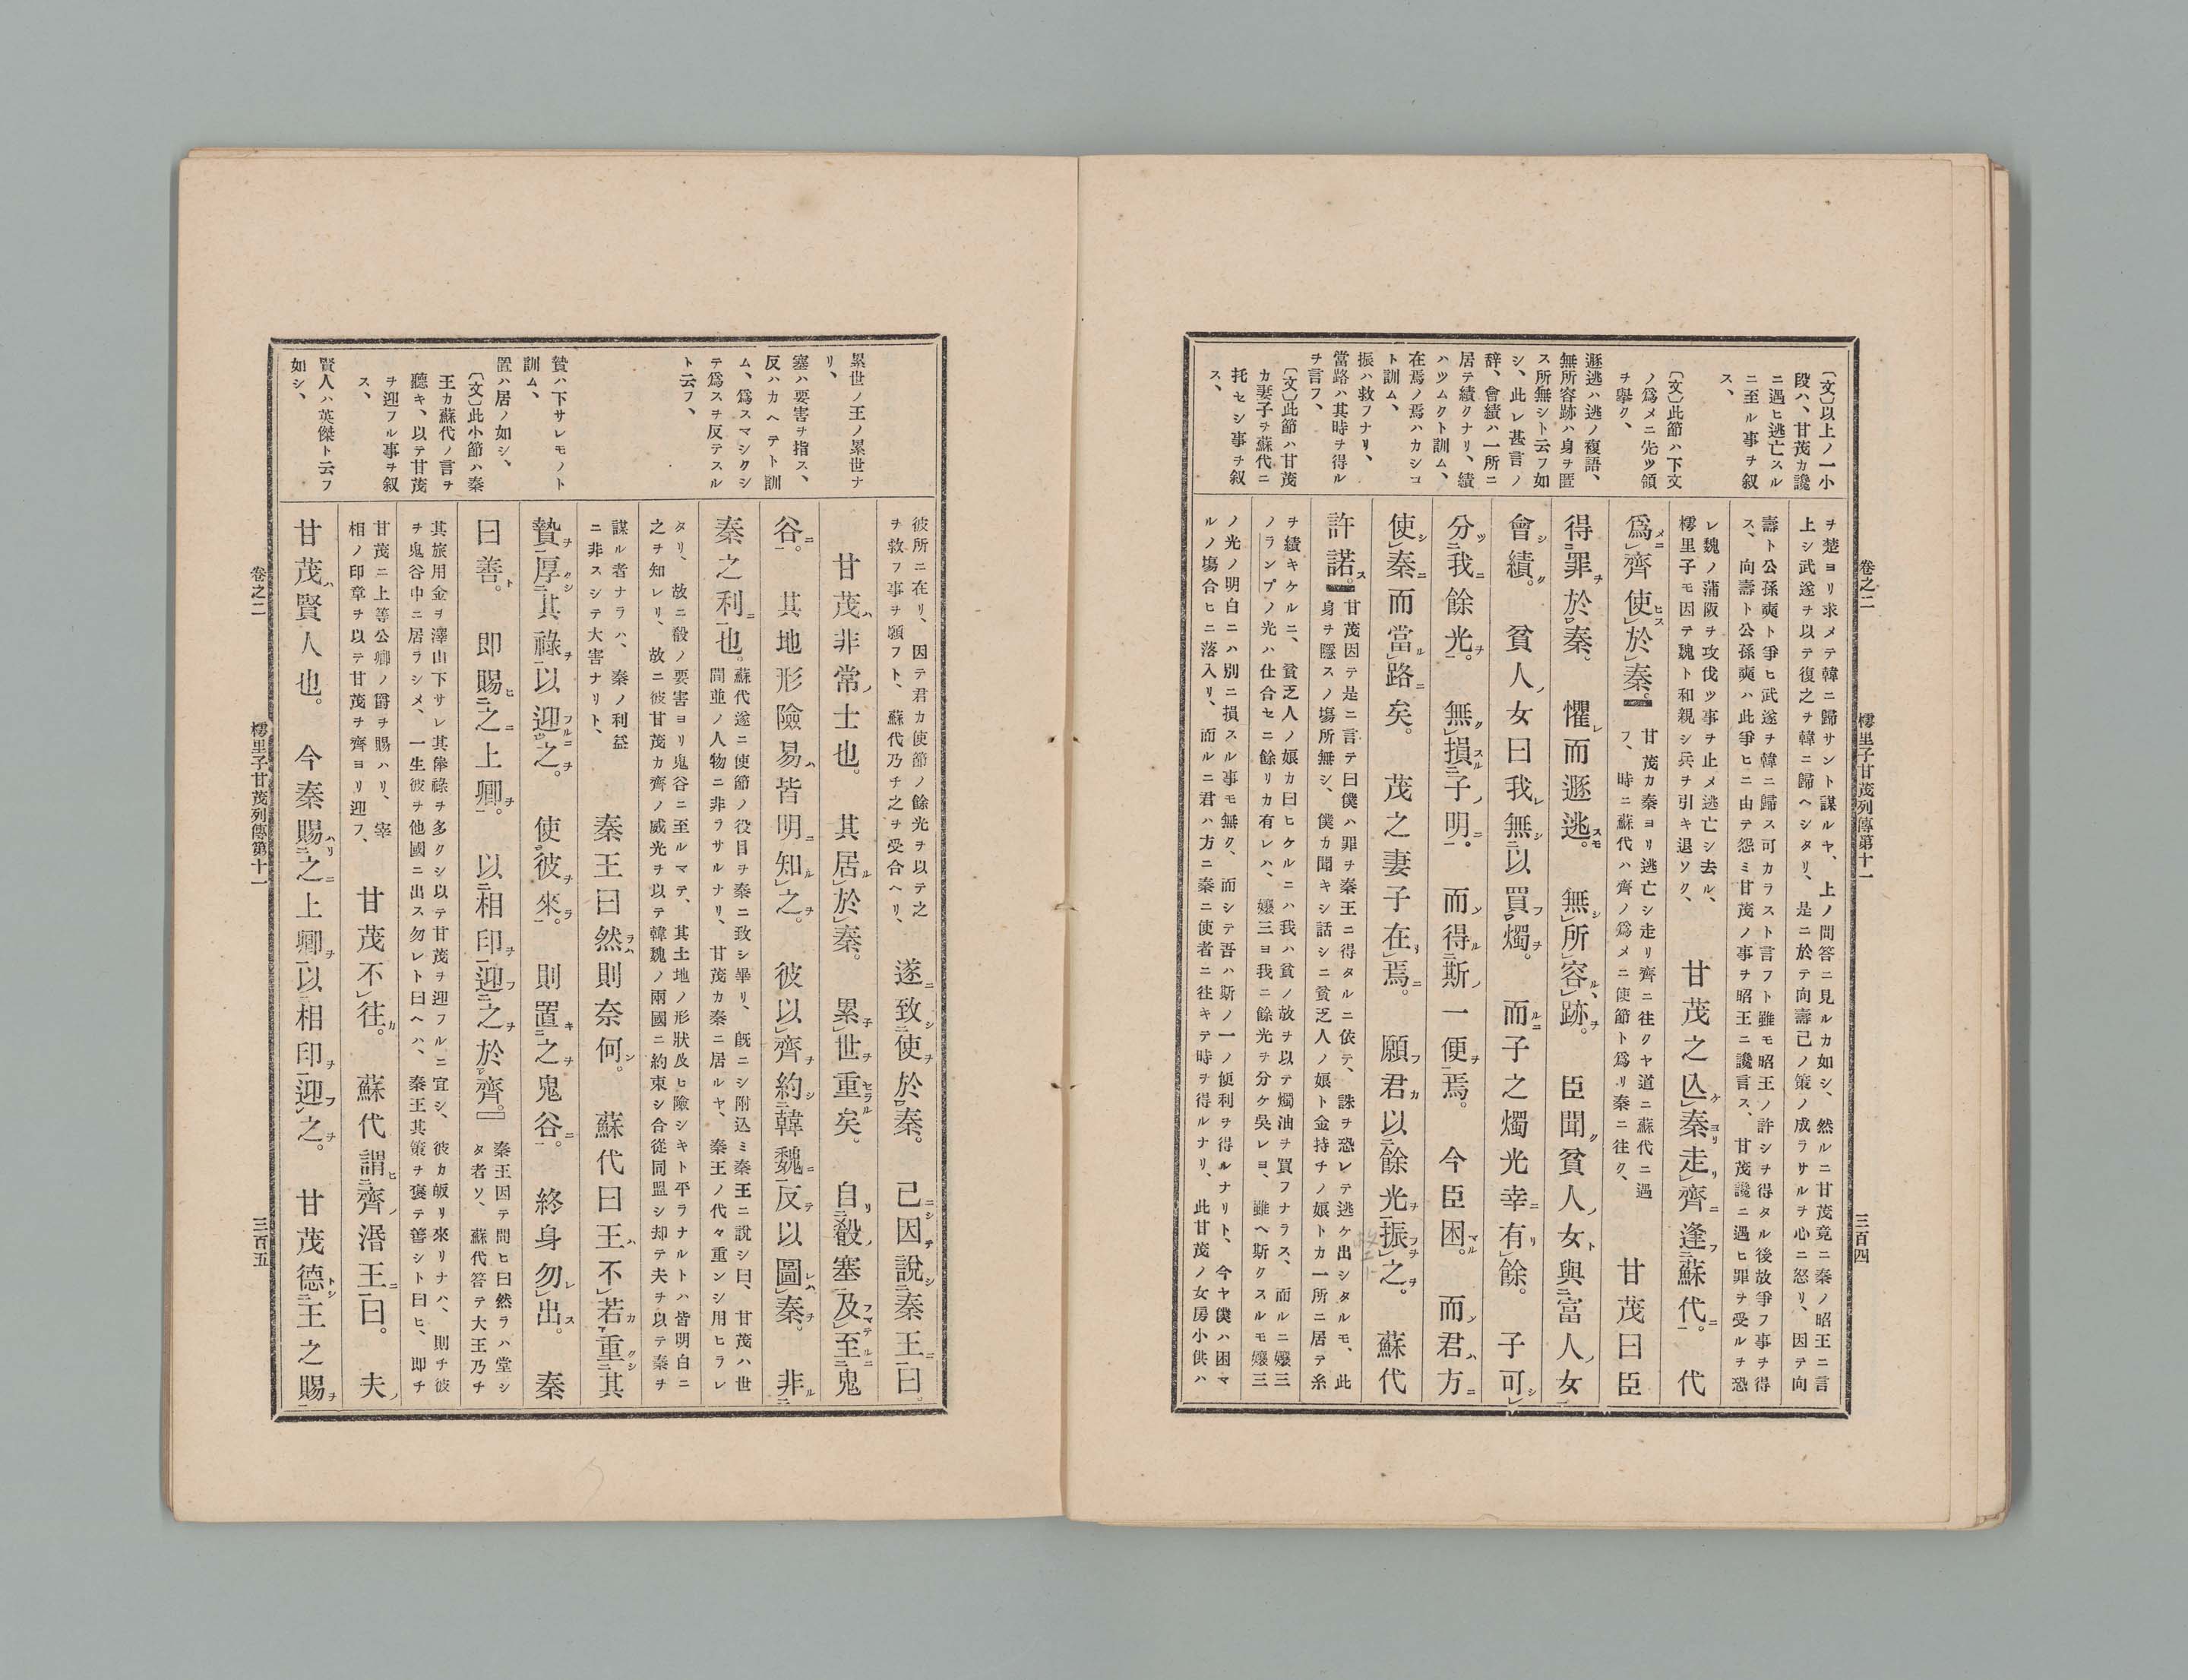 卷之二
樗里子甘茂列傳第十一
三百四
〔文〕以上ノ一小
段ハ、甘茂カ讒
ニ遇ヒ逃亡スル
ニ至ル事ヲ叙
ス、
〔文〕此節ハ下文
ノ爲メニ先ツ領
ヲ擧ク、
遯逃ハ逃ノ複語、
無所容跡ハ身ヲ匿
ス所無シト云フ如
シ、此レ甚言ノ
辞、會績ハ一所ニ
居テ績クナリ、績
ハツムクト訓ム、
在焉ノ焉ハカシコ
ト訓ム、
振ハ救フナリ、
當路ハ其時ヲ得ル
ヲ言フ、
〔文〕此節ハ甘茂
カ妻子ヲ蘇代ニ
托セシ事ヲ叙
ス、
ヲ楚ヨリ求メテ韓ニ歸サント謀ルヤ、上ノ問答ニ見ルカ如シ、然ルニ甘茂竟ニ秦ノ昭王ニ言
上シ武遂ヲ以テ復之ヲ韓ニ歸ヘシタリ、是ニ於テ向壽己ノ策ノ成ラサルヲ心ニ怒リ、因テ向
壽ト公孫奭ト爭ヒ武遂ヲ韓ニ歸ス可カラスト言フト雖モ昭王ノ許シヲ得タル後故爭フ事ヲ得
ス、向壽ト公孫奭ハ此爭ヒニ由テ怨ミ甘茂ノ事ヲ昭王ニ讒言ス、甘茂讒ニ遇ヒ罪ヲ受ルヲ恐
レ魏ノ蒲阪ヲ攻伐ツ事ヲ止メ逃亡シ去ル、
樗里子モ因テ魏ト和親シ兵ヲ引キ退ソク、
甘茂之亾秦走齊逢蘇代。代
爲齊使於秦。
甘茂カ秦ヨリ逃亡シ走リ齊ニ往クヤ道ニ蘇代ニ遇
フ、時ニ蘇代ハ齊ノ爲メニ使節ト爲リ秦ニ往ク、
甘茂曰臣
得罪於秦、懼而遯逃。無所容跡。臣聞貧人女與富人女
會績。貧人女曰我無以買燭。而子之燭光幸有餘。子可
分我餘光。無損子明。而得斯一便焉。今臣困。而君方
使秦而當路矣。茂之妻子在焉。願君以餘光振之。蘇代
許諾。
甘茂因テ是ニ言テ曰僕ハ罪ヲ秦王ニ得タルニ依テ、誅ヲ恐レテ逃ケ出シタルモ、此
身ヲ隱スノ塲所無シ、僕カ聞キシ話シニ貧乏人ノ娘ト金持チノ娘トカ一所ニ居テ糸
ヲ績キケルニ、貧乏人ノ娘カ曰ヒケルニハ我ハ貧ノ故ヲ以テ燭油ヲ買フナラス、而ルニ孃三
ノランプノ光ハ仕合セニ餘リカ有レハ、孃三ヨ我ニ餘光ヲ分ケ吳レヨ、雖ヘ斯クスルモ孃三
ノ光ノ明白ニハ別ニ損スル事モ無ク、而シテ吾ハ斯ノ一ノ便利ヲ得ルナリト、今ヤ僕ハ困マ
ルノ塲合ヒニ落入リ、而ルニ君ハ方ニ秦ニ使者ニ往キテ時ヲ得ルナリ、此甘茂ノ女房小供ハ
累世ノ王ノ累世ナ
リ、
塞ハ要害ヲ指ス、
反ハカヘテト訓
ム、爲スマシクシ
テ爲スヲ反テスル
ト云フ、
贄ハ下サレモノト
訓ム、
置ハ居ノ如シ、
〔文〕此小節ハ秦
王カ蘇代ノ言ヲ
聽キ、以テ甘茂
ヲ迎フル事ヲ叙
ス、
賢人ハ英傑ト云フ
如シ、
彼所ニ在リ、因テ君カ使節ノ餘光ヲ以テ之
ヲ救フ事ヲ願フト、蘇代乃チ之ヲ受合ヘリ、
遂致使於秦。已因說秦王曰。
甘茂非常士也。其居於秦。累世重矣。自殽塞及至鬼
谷。其地形險易皆明知之。彼以齊約韓魏反以圖秦。非
秦之利也。
蘇代遂ニ使節ノ役目ヲ秦ニ致シ畢リ、既ニシ附込ミ秦王ニ說シ曰、甘茂ハ世
間並ノ人物ニ非ラサルナリ、甘茂カ秦ニ居ルヤ、秦王ノ代々重ンシ用ヒラレ
タリ、故ニ殽ノ要害ヨリ鬼谷ニ至ルマテ、其土地ノ形狀及ヒ險シキト平ラナルトハ皆明白ニ
之ヲ知レリ、故ニ彼甘茂カ齊ノ威光ヲ以テ韓魏ノ兩國ニ約束シ合從同盟シ却テ夫ヲ以テ秦ヲ
謀ル者ナラハ、秦ノ利益
ニ非スシテ大害ナリト、
秦王曰然則奈何。蘇代曰王不若重其
贄厚其祿以迎之。使彼來。則置之鬼谷。終身勿出。秦
曰善。卽賜之上卿。以相印迎之於齊。
秦王因テ問ヒ曰然ラハ堂シ
タ者ソ、蘇代答テ大王乃チ
其旅用金ヲ澤山下サレ其俸祿ヲ多クシ以テ甘茂ヲ迎フルニ宜シ、彼カ皈リ來リナハ、則チ彼
ヲ鬼谷中ニ居ラシメ、一生彼ヲ他國ニ出ス勿レト曰ヘハ、秦王其策ヲ褒テ善シト曰ヒ、即チ
甘茂ニ上等公卿ノ爵ヲ賜ハリ、宰
相ノ印章ヲ以テ甘茂ヲ齊ヨリ迎フ、
甘茂不往。蘇代謂齊湣王曰。夫
甘茂賢人也。今秦賜之上卿以相印迎之。甘茂德王之賜
卷之二
樗里子甘茂列傳第十一
三百五